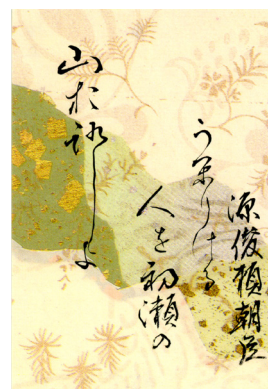 源俊頼朝臣
うかりける
人を初瀬の
山おろしよ